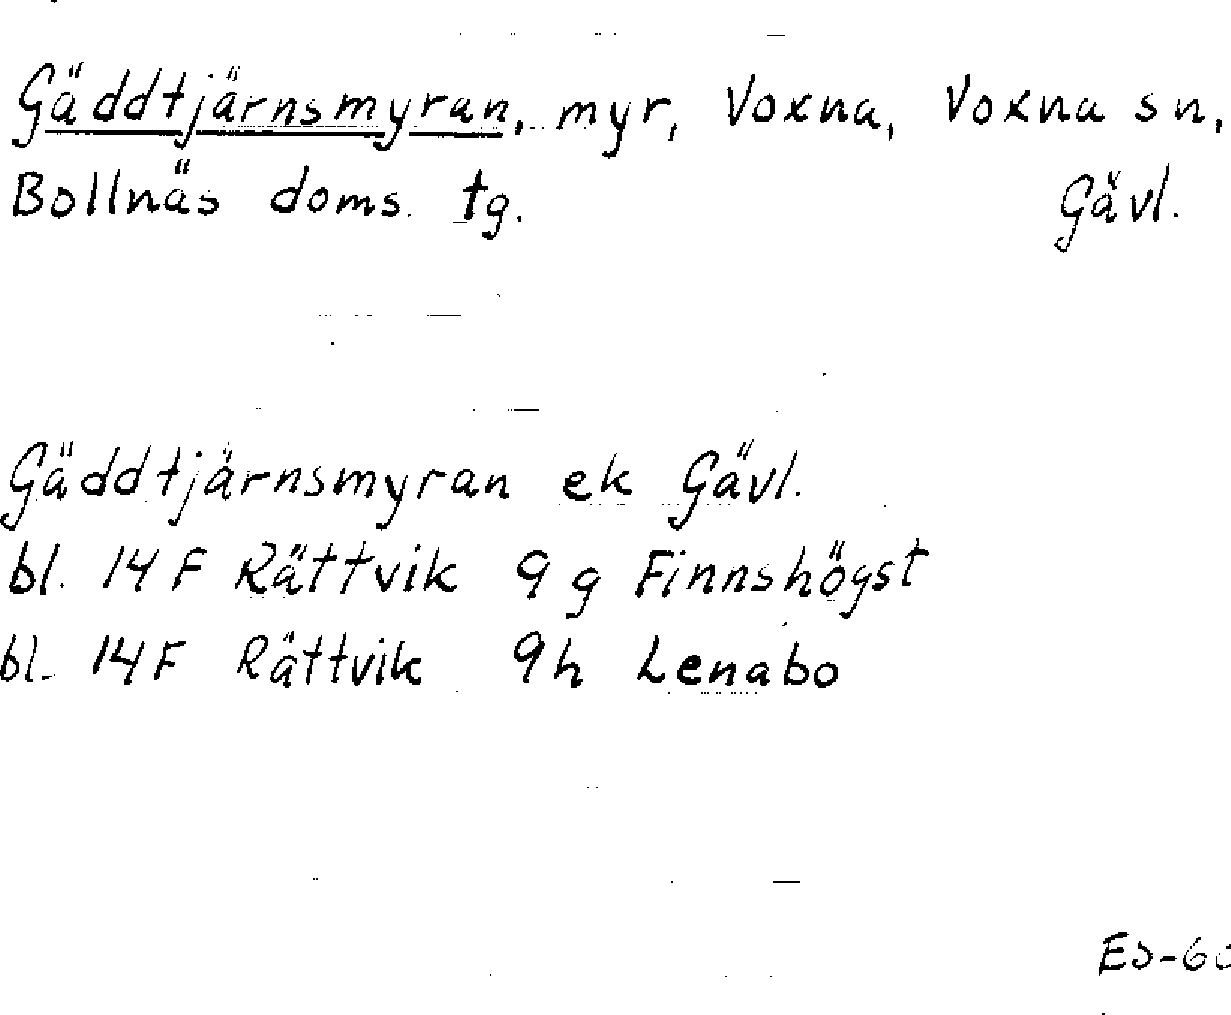 Gäddtjärnsmyran, myr, Voxna, Voxna sn,
Bollnäs doms. tg. Gävl.
Gäddtjärnsmyran ek Gävl.
bl. 14 F Rättvik 9 g Finnshögst
bl. 14 F Rättvik 9h Lenabo